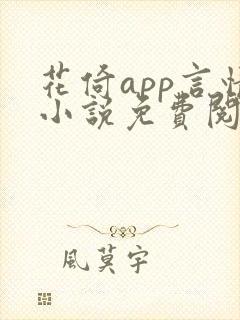 花倚app言情
小說免費閱
風莫宇